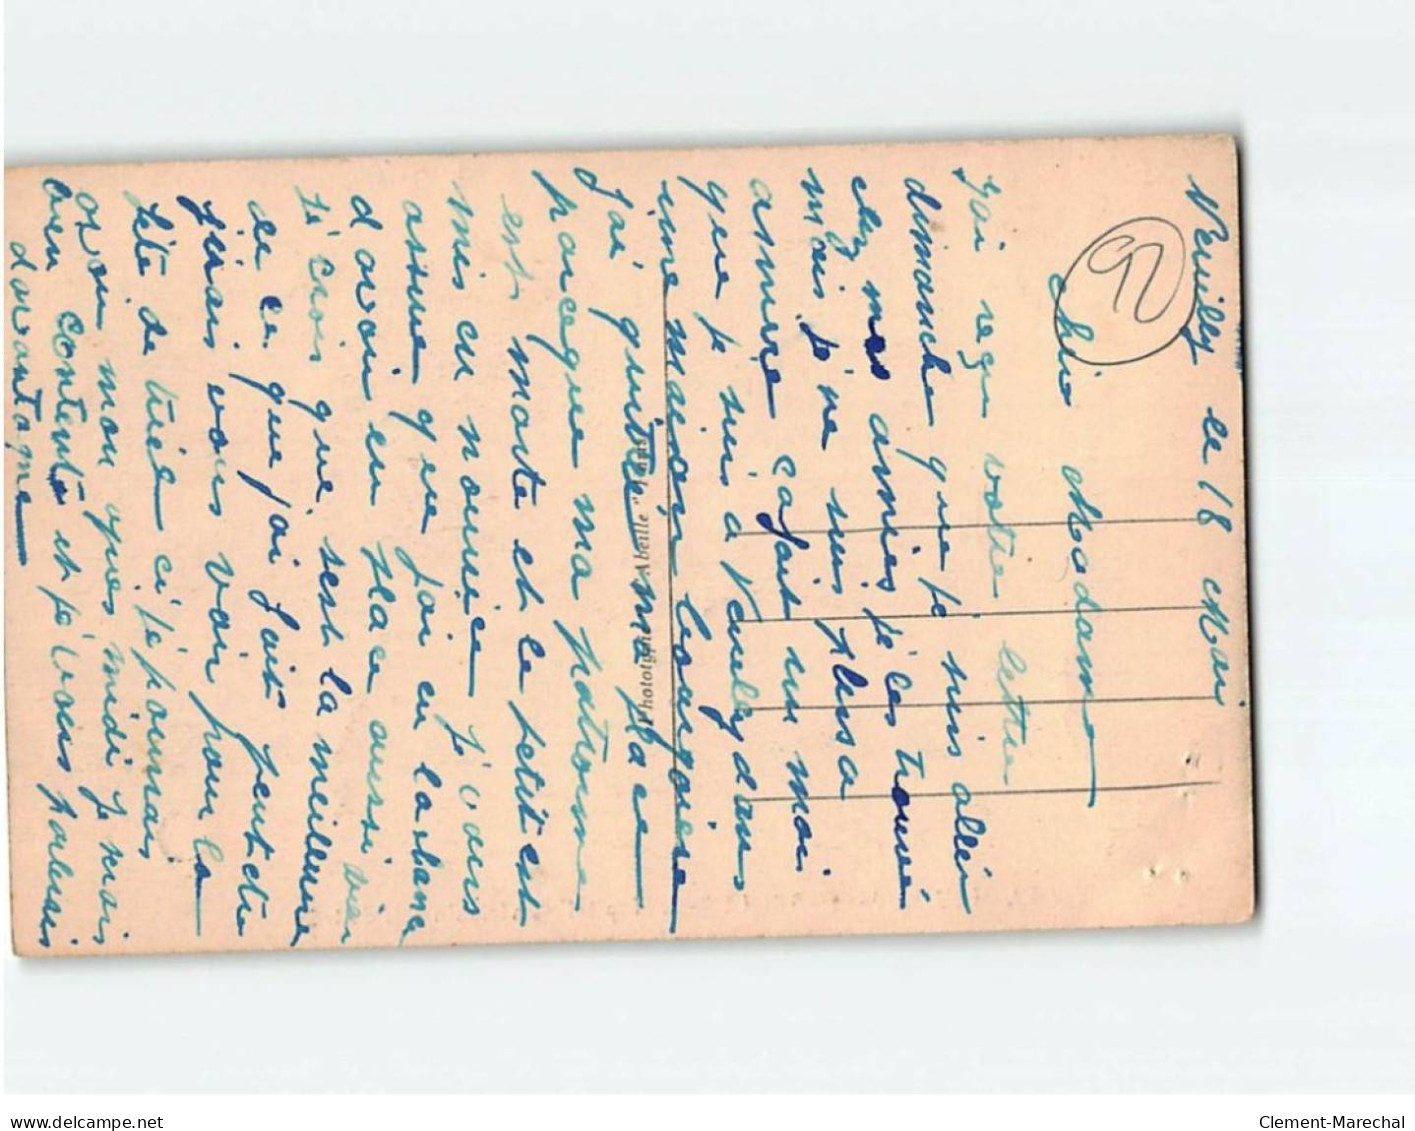 Neuilly le 18 Mai
92
Chère Madame
J'ai reçu votre lettre
dimanche que je suis allér
chez mes amies je les trouvé
mais je ne suis plus a
asnière cafait un moi
que je suis a Neuily dans
une maison bourgoise
J'ai quitter ma place
parceque ma patronne
est morte et le petit est
mis en nourrice je vous
assure que j'ai eu la chance
d'avoir eu place aussi bien
Je crois que sest la meilleure
de ce que j'ai fait peutetre
jirais vous voir pour la
fête de ci je pourrais
avoir mon apres midi je serais
bien contente et je vous parlerais
davantage
Phototypie "Abeille" Paris
delcampe.net
Clement-Marechal